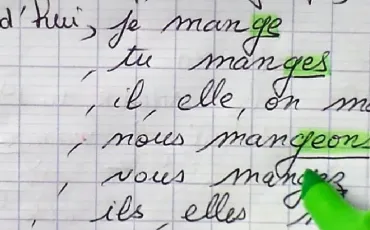 d'hui, je mange
, tu manges
, il, elle, on m
, nous mangeons
, vous mangez
, ils, elles